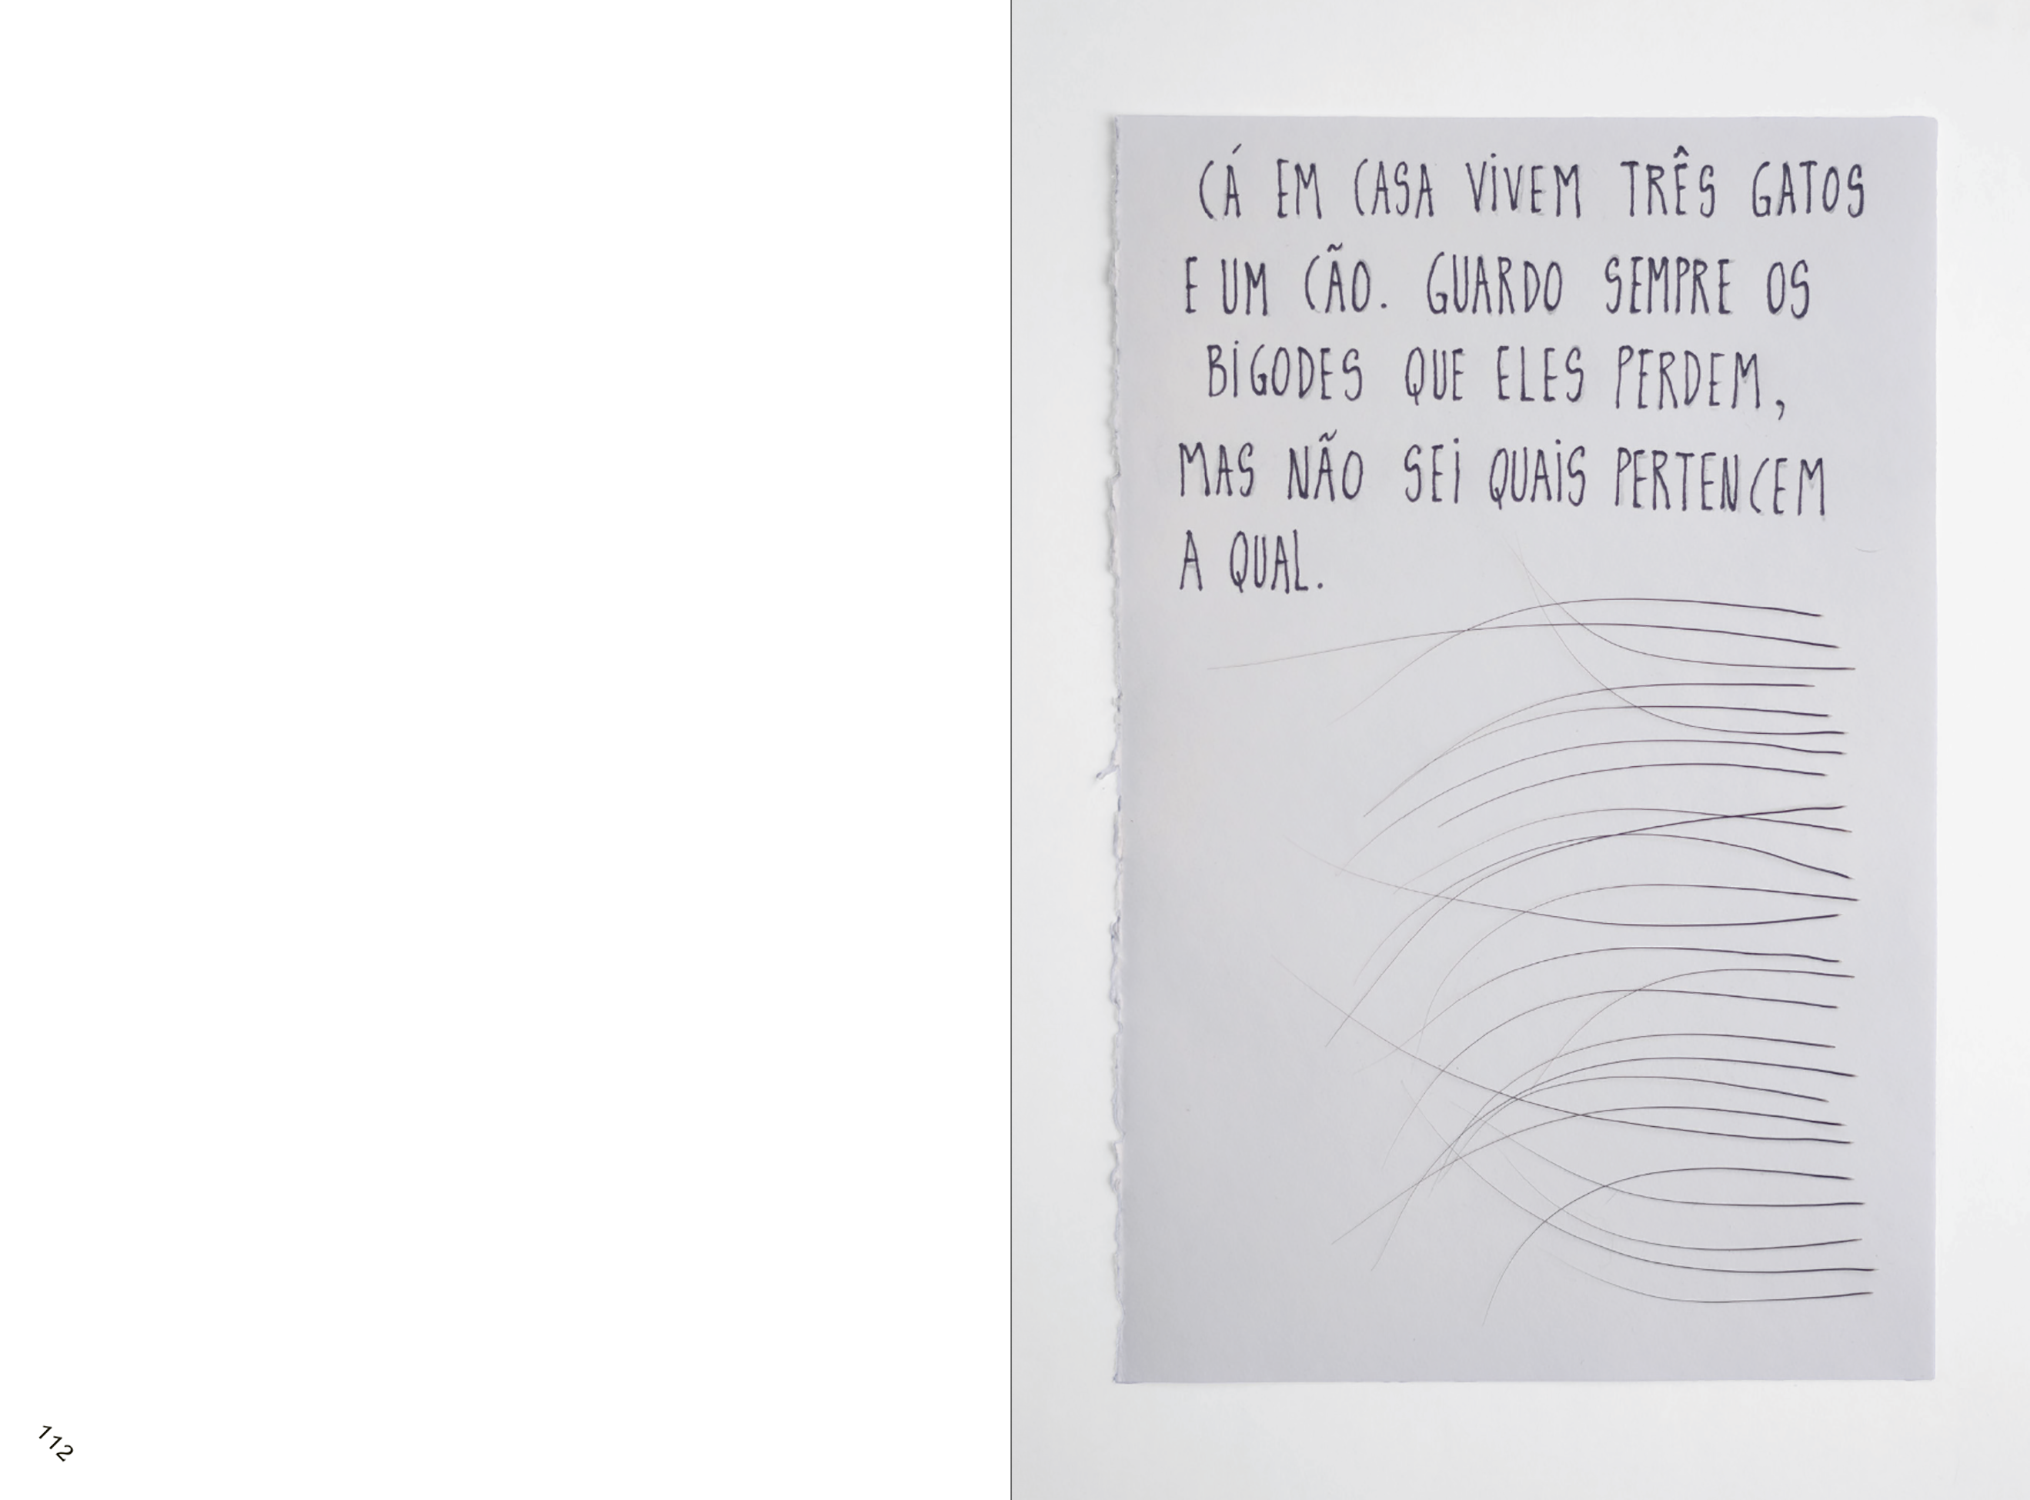 CÁ EM CASA VIVEM TRÊS GATOS
E UM CÃO. GUARDO SEMPRE OS
BIGODES QUE ELES PERDEM,
MAS NÃO SEI QUAIS PERTENCEM
A QUAL.
112